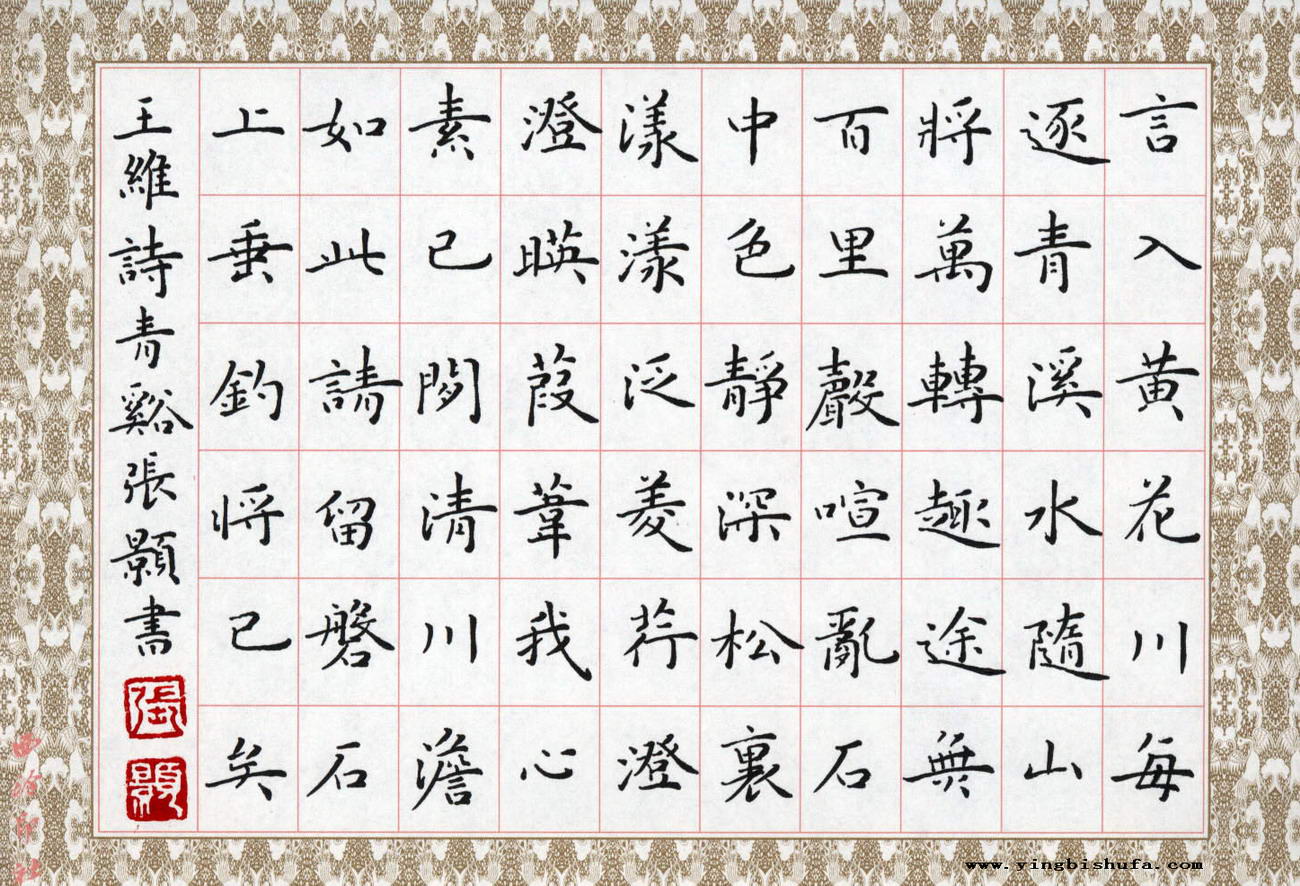 言入黄花川每
逐青溪水隨山
將萬轉趣途無
百里聲喧亂石
中色靜深松裏
漾漾泛菱荇澄
澄暎葭葦我心
素已閑清川澹
如此請留磐石
上垂釣将已矣
王維詩青谿張顥書
張
顥
西泠印社
www.yingbishufa.com